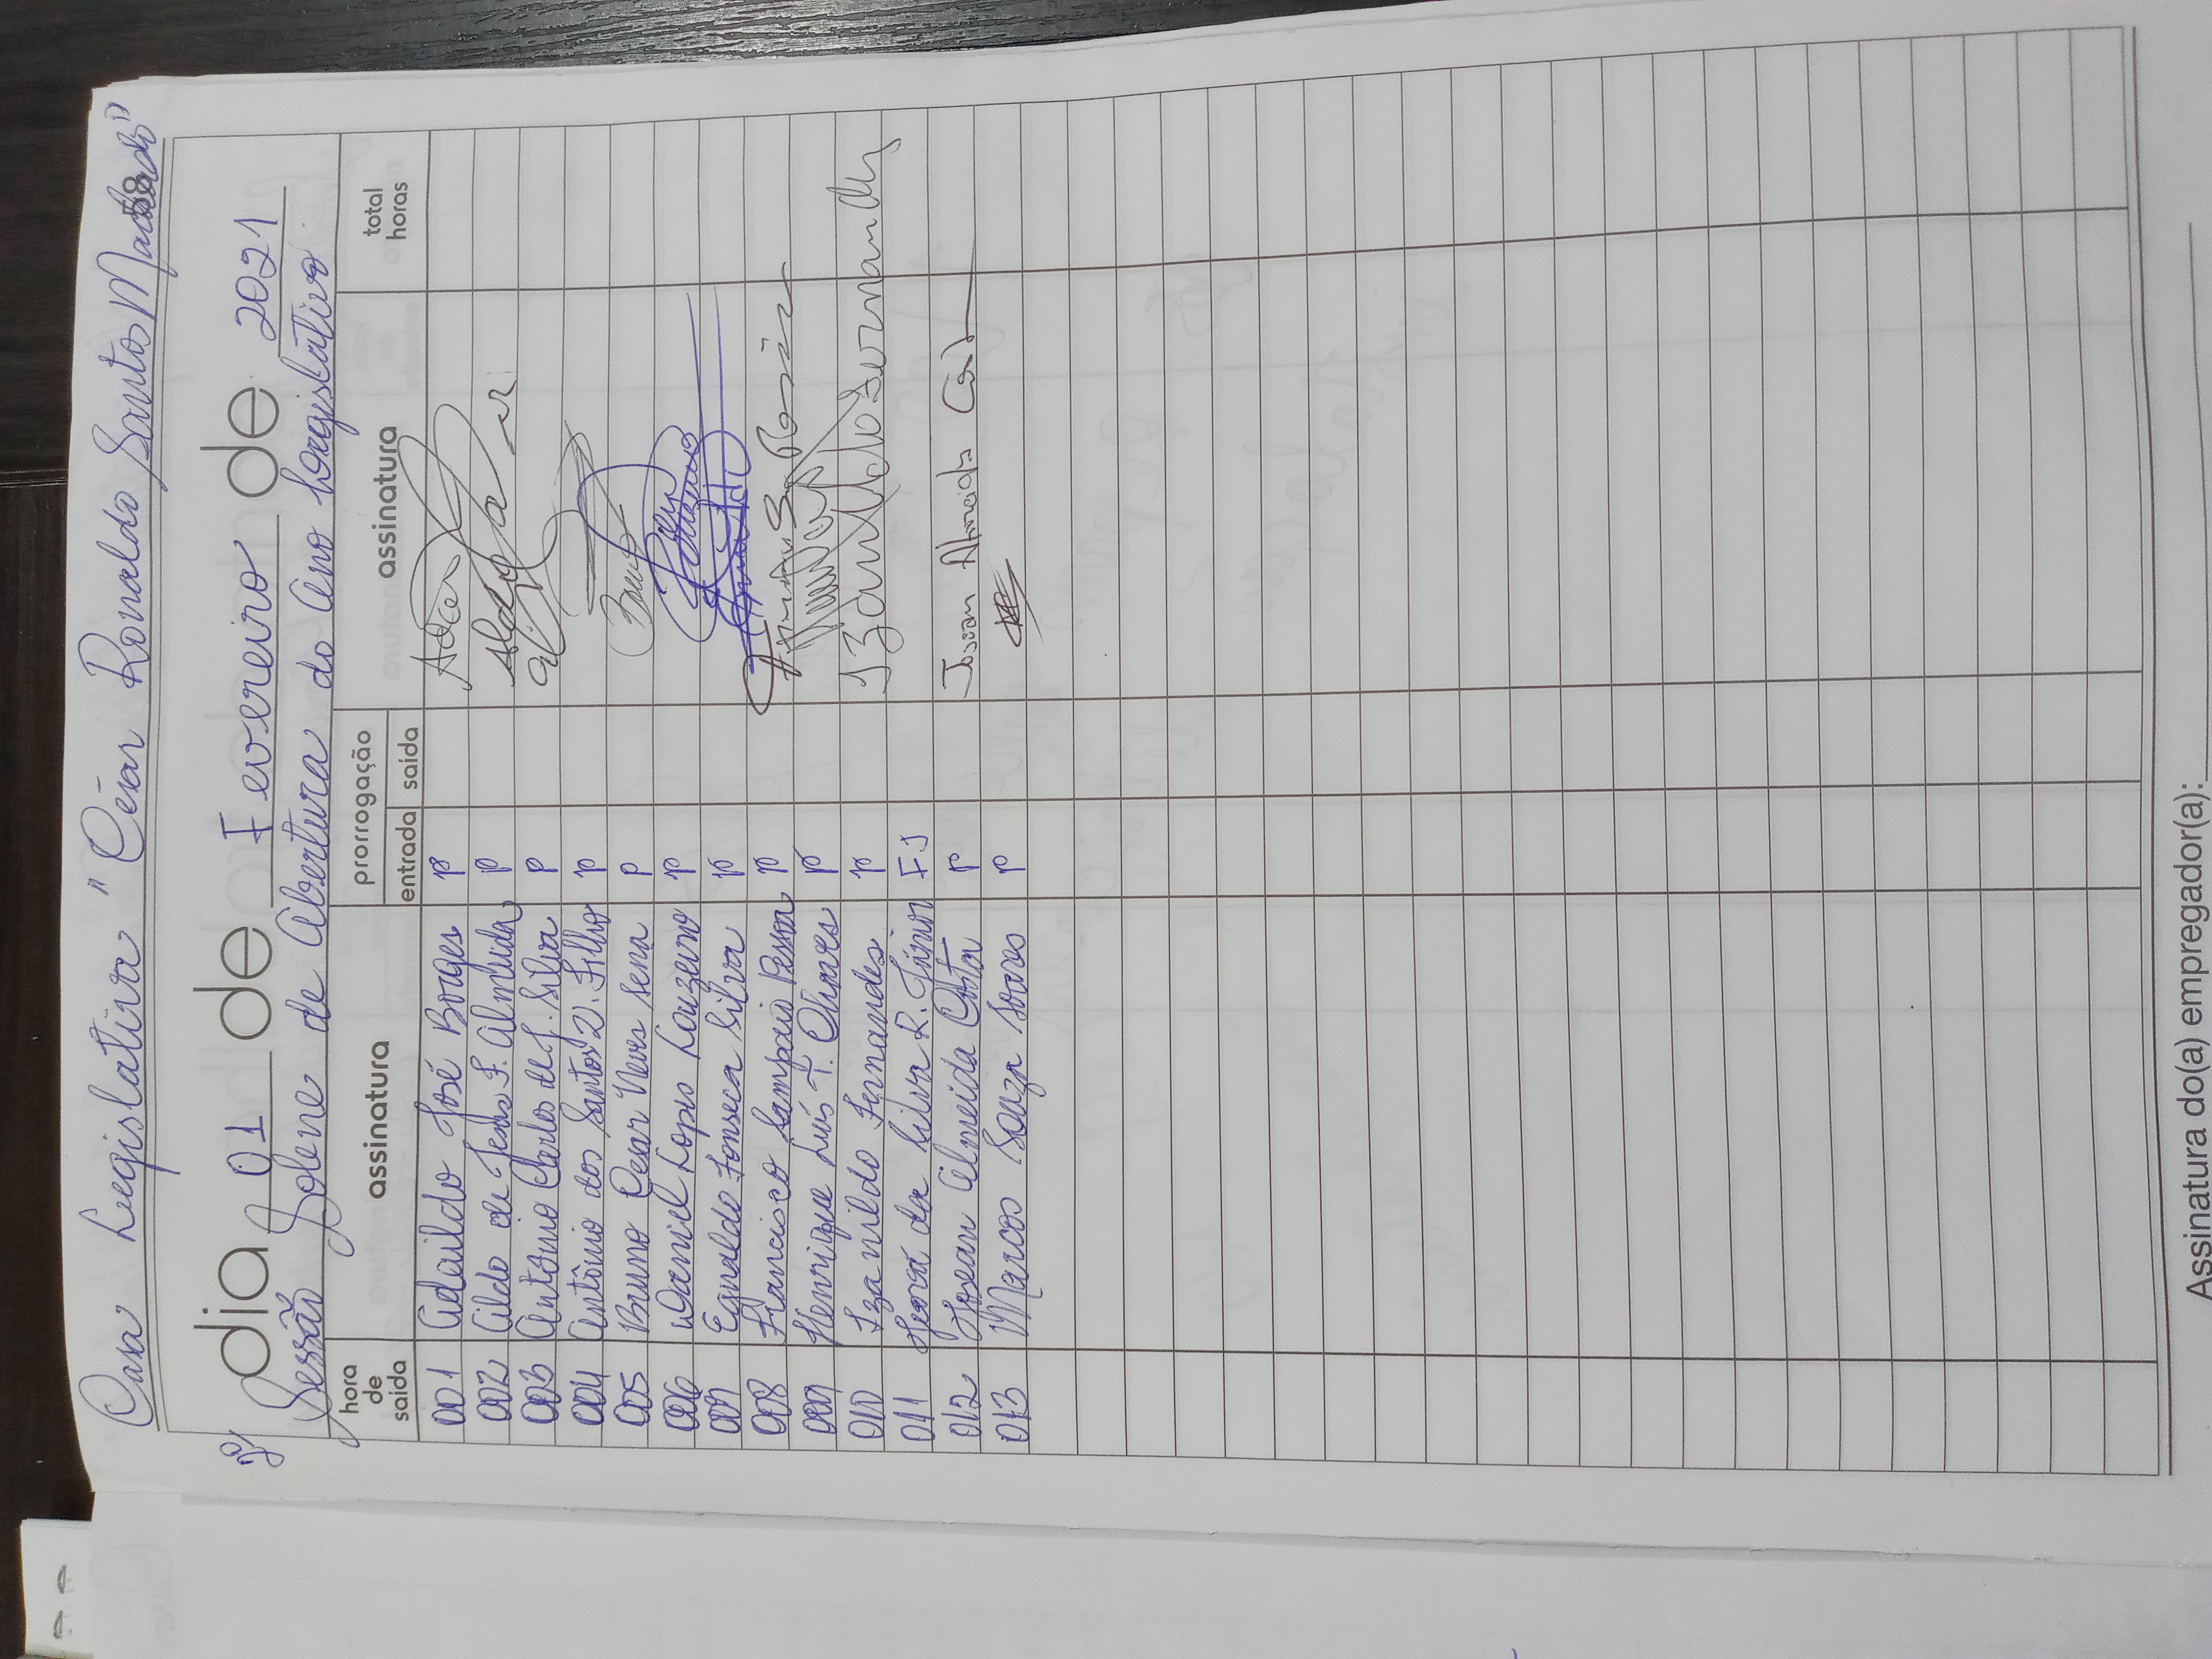 Casa Legislativa "César Ronaldo Santos Machado"
58
dia 01 de Fevereiro de 2021
Sessão Solene de Abertura do Ano Legislativo
hora de saída assinatura prorrogação entrada saída assinatura total horas
001 Adaildo José Borges P
002 Aildo de Jesus F. Almeida P
003 Antônio Carlos de J. Silva P
004 Antônio dos Santos V. Filho P
005 Bruno Cesar Neves Sena P Bruno
006 Daniel Lopes Louzeiro P
007 Egnaldo Fonseca Silva P
008 Francisco Sampaio Pessoa P
009 Henrique Luís T. Chaves P
010 Izanildo Fernandes P Izanildo Fernandes
011 da Silva R. Júnior FJ
012 Josean Almeida Costa P Josean Almeida Costa
013 Marcos Souza Soares P
Assinatura do(a) empregador(a):